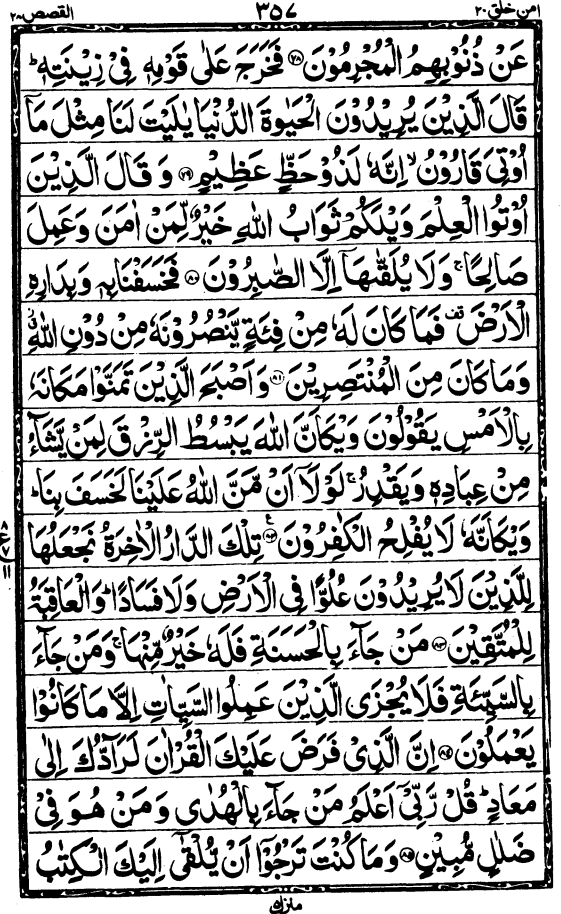 امن خلق ٢٠ ٣٥٧ القصص ٢٨
عَنْ ذُنُوْبِهِمُ الْمُجْرِمُوْنَ ﴿٧٨﴾ فَخَرَجَ عَلٰى قَوْمِهٖ فِیْ زِیْنَتِهٖ ؕ
قَالَ الَّذِیْنَ یُرِیْدُوْنَ الْحَیٰوةَ الدُّنْیَا یٰلَیْتَ لَنَا مِثْلَ مَاۤ
اُوْتِیَ قَارُوْنُ ۙ اِنَّهٗ لَذُوْ حَظٍّ عَظِیْمٍ ﴿٧٩﴾ وَ قَالَ الَّذِیْنَ
اُوْتُوا الْعِلْمَ وَیْلَكُمْ ثَوَابُ اللّٰهِ خَیْرٌ لِّمَنْ اٰمَنَ وَعَمِلَ
صَالِحًا ۚ وَلَا یُلَقّٰىهَاۤ اِلَّا الصّٰبِرُوْنَ ﴿٨٠﴾ فَخَسَفْنَا بِهٖ وَبِدَارِهِ
الْاَرْضَ ۫ فَمَا كَانَ لَهٗ مِنْ فِئَةٍ یَّنْصُرُوْنَهٗ مِنْ دُوْنِ اللّٰهِ ۗ
وَمَا كَانَ مِنَ الْمُنْتَصِرِیْنَ ﴿٨١﴾ وَاَصْبَحَ الَّذِیْنَ تَمَنَّوْا مَكَانَهٗ
بِالْاَمْسِ یَقُوْلُوْنَ وَیْكَاَنَّ اللّٰهَ یَبْسُطُ الرِّزْقَ لِمَنْ یَّشَآءُ
مِنْ عِبَادِهٖ وَیَقْدِرُ ۚ لَوْلَاۤ اَنْ مَّنَّ اللّٰهُ عَلَیْنَا لَخَسَفَ بِنَا ؕ
وَیْكَاَنَّهٗ لَا یُفْلِحُ الْكٰفِرُوْنَ ﴿٨٢﴾ تِلْكَ الدَّارُ الْاٰخِرَةُ نَجْعَلُهَا
٨ ع ٧ ١١
لِلَّذِیْنَ لَا یُرِیْدُوْنَ عُلُوًّا فِی الْاَرْضِ وَلَا فَسَادًا ؕ وَالْعَاقِبَةُ
لِلْمُتَّقِیْنَ ﴿٨٣﴾ مَنْ جَآءَ بِالْحَسَنَةِ فَلَهٗ خَیْرٌ مِّنْهَا ۚ وَمَنْ جَآءَ
بِالسَّیِّئَةِ فَلَا یُجْزَی الَّذِیْنَ عَمِلُوا السَّیِّاٰتِ اِلَّا مَا كَانُوْا
یَعْمَلُوْنَ ﴿٨٤﴾ اِنَّ الَّذِیْ فَرَضَ عَلَیْكَ الْقُرْاٰنَ لَرَآدُّكَ اِلٰى
مَعَادٍ ؕ قُلْ رَّبِّیْۤ اَعْلَمُ مَنْ جَآءَ بِالْهُدٰى وَمَنْ هُوَ فِیْ
ضَلٰلٍ مُّبِیْنٍ ﴿٨٥﴾ وَمَا كُنْتَ تَرْجُوْۤا اَنْ یُّلْقٰۤى اِلَیْكَ الْكِتٰبُ
منزل